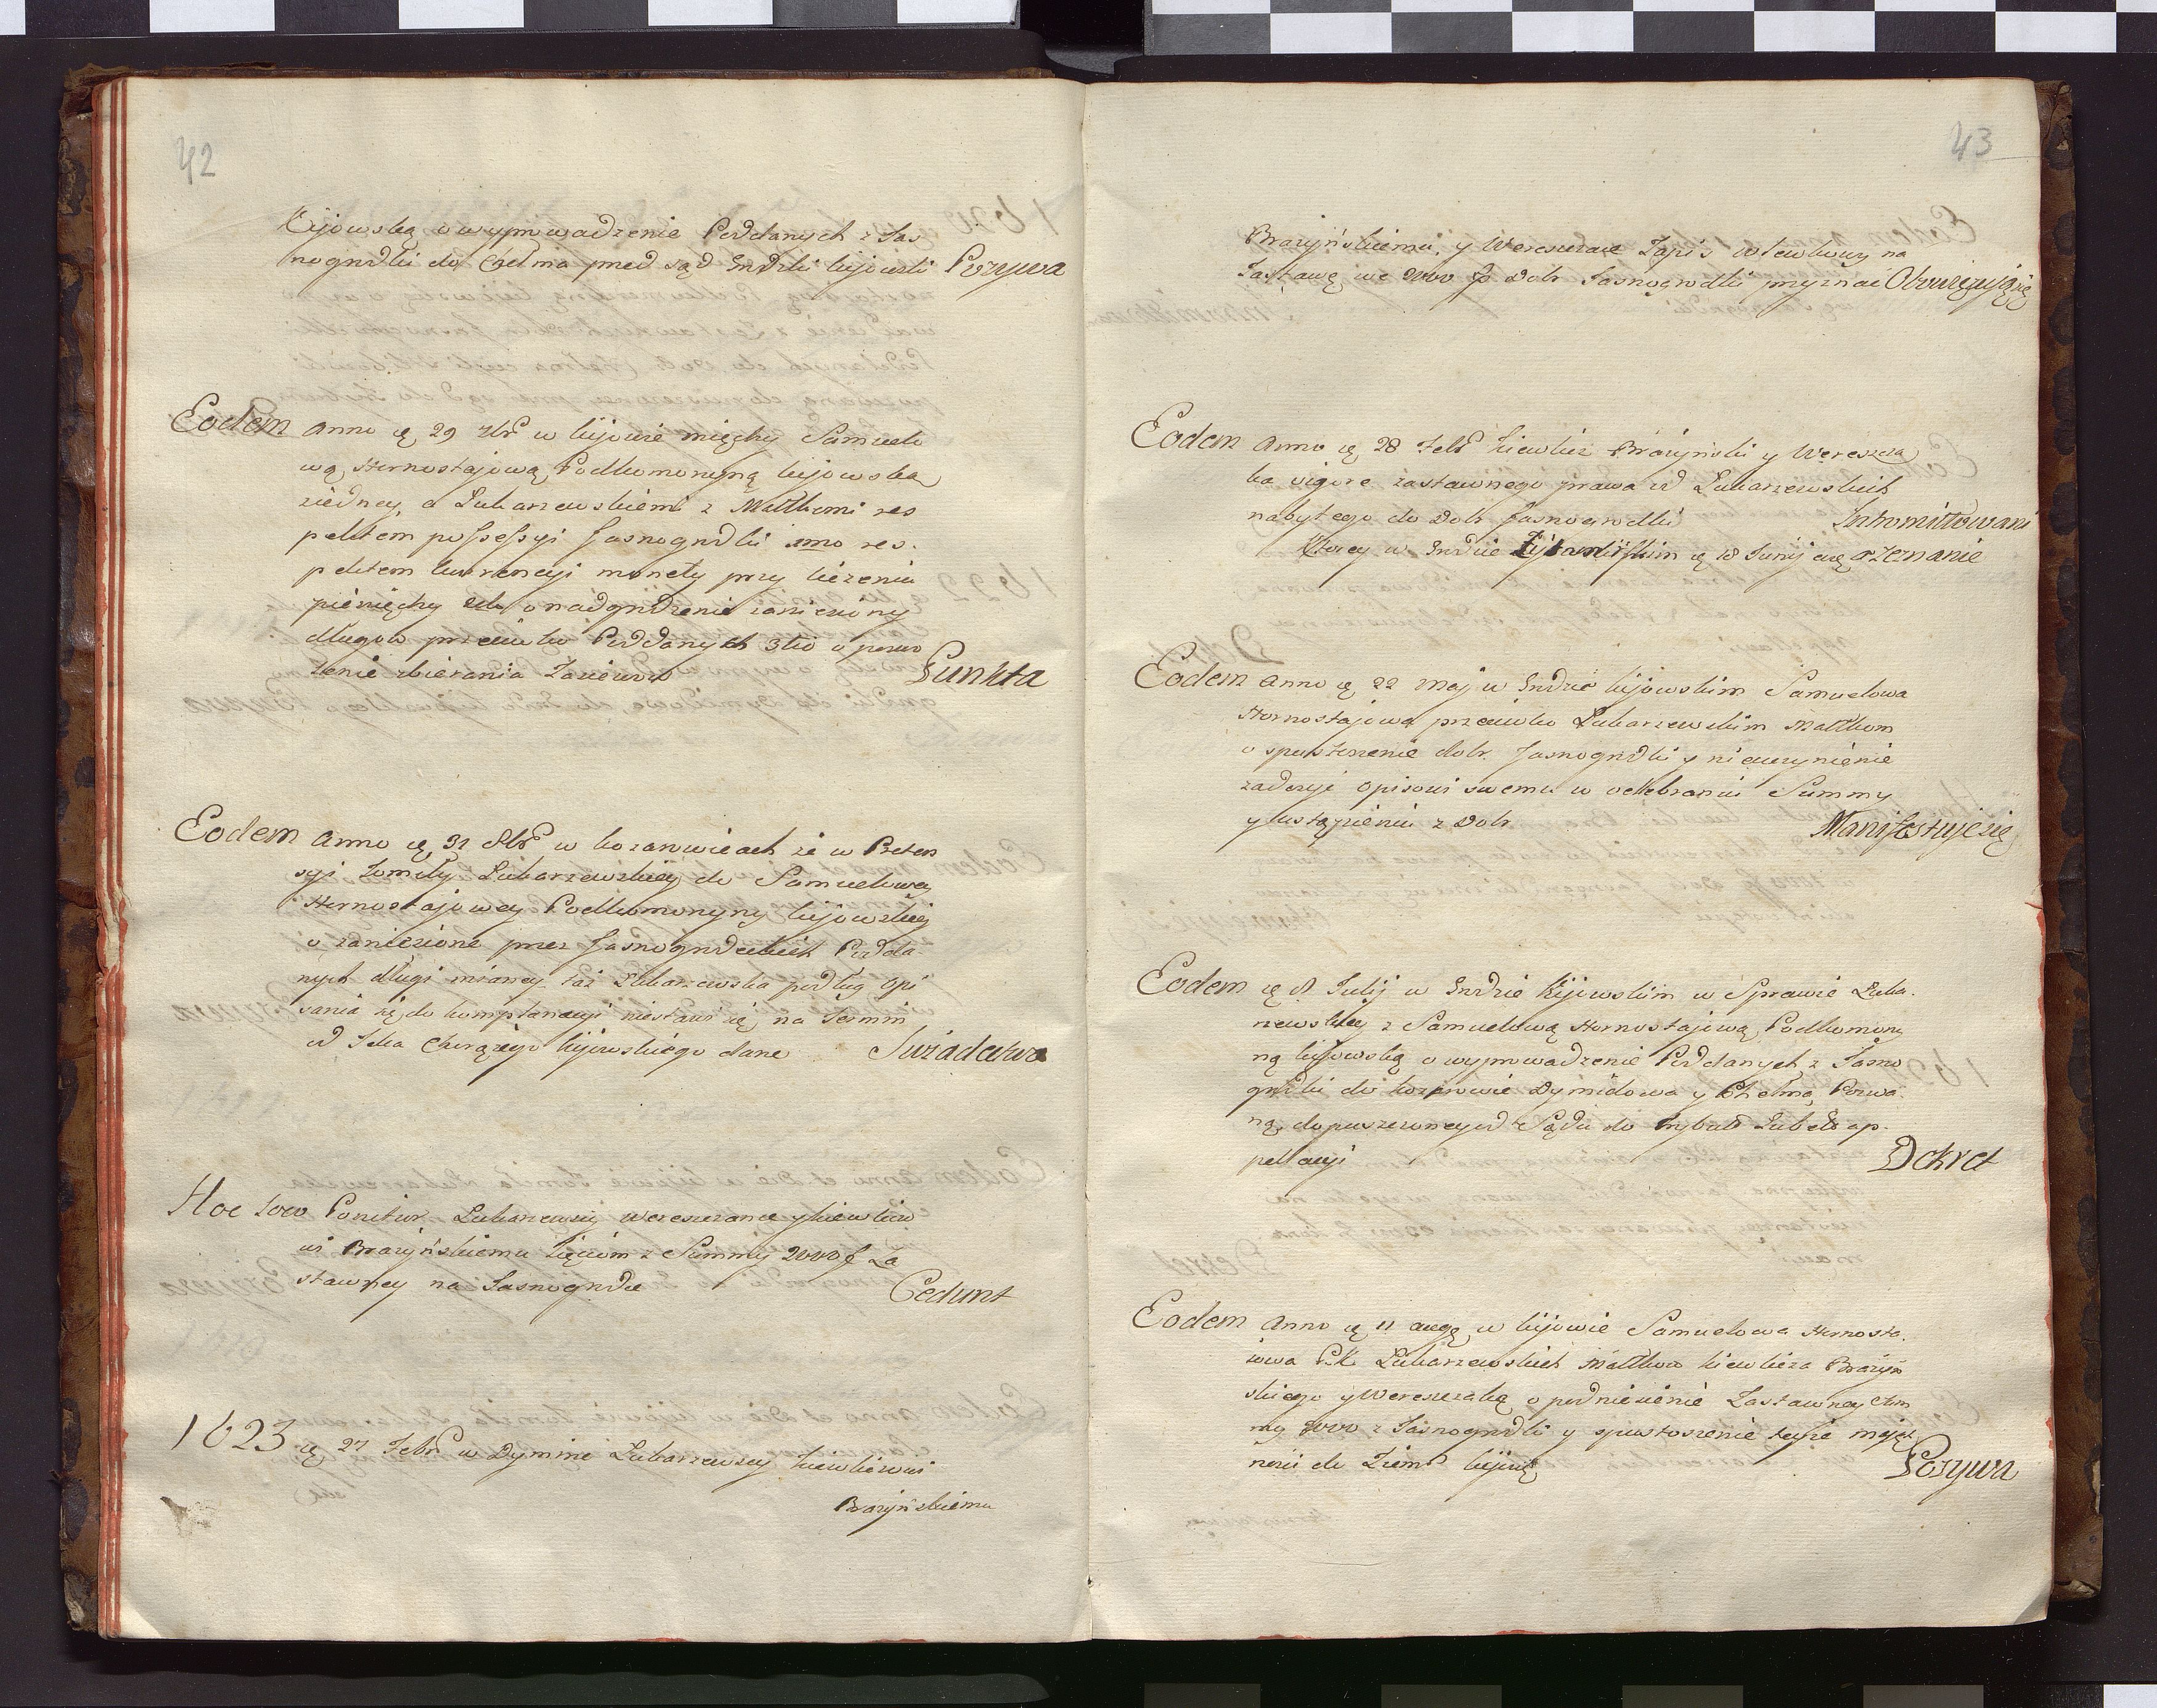 42
Kijowską o wyprowadzenie Poddanych z Jas
nogrodki do Chełma przed sąd Grodzki kijowski Pozywa
Eodem Anno 29 7br w kijowie między Samuelo
wą Hornostajową Podkomorzyną kijowską
z iedney, a Lubarzewskiemi z Małkomi res
pektem possessyi Jasnogrodki 1mo res.
pektem kurrencyi monety przy liczeniu
pieniędzy 2do o nadgrodzenie zaniesiony
długów przeciwko Poddanych 3tio o pozwo
lenie zbierania Zasiewów Punkta
Eodem Anno 31 8br w kozarowicach że w Preten
syi Tomiły Lubarzewskiey do Samuelowey
Hornostajowey Podkomorzyny kijowskiey
o zaniesione przez Jasnogrodeckich Podda
nych długi mianey taż Lubarzewska podług opi
sania się do komplanacyi niestawi się na Termin
od Jcha Chorążego kijowskiego dane Swiadectwo
Hoc loco Ponitur Lubarzewscy Wereszczance y kiewlicz
wi Brazyńskiemu Zięciom z Summy 2000 f Za
stawney na Jasnogrodce Cedunt
1623 27 Febr w Dymirze Lubarzewscy kiewliczowi
Brazyńskiemu
43
Brazyńskiemu y Wereszczace Zapis wlewkowy na
Zastawę we 2000 f Dobr Jasnogrodki przyznać Obowiązują się
Eodem Anno 28 Febr kiewlicz Brazyński y Wereszcza
ka vigore zastawnego prawa od Lubarzewskich
nabytego do Dobr Jasnogrodki Intromittowani
Ktorey w Grodzie Żytomirskim 18 Junij zeznanie
Eodem Anno 22 Maj w Grodzie kijowskim Samuelowa
Hornostajowa przeciwko Lubarzewskim Małkom
o spustoszenie dobr Jasnogrodki y nieuczynienie
zadosyć opisowi swemu w odebraniu Summy
y ustąpieniu z Dobr Manifestuje się
Eodem Julij w Grodzie Kijowskim w Sprawie Luba.
rzewskiey z Samuelową Hornostajową Podkomorzy
ną kijowską o wyprowadzenie Poddanych z Jasno
grodki do kozarowic Dymidowa y Chełma Pozwa.
ną, dopuszczoney od Sądu do Trybuł Lubels ap.
pellacyi Dekret
Eodem Anno 11 aug w kijowie Samuelowa Hornosta.
iowa P.K. Lubarzewskich Małkow kiewlicza Brazyń
skiego y Wereszczakę o podniesienie Zastawney Sum
my 2000 z Jasnogrodki y spustoszenie teyże majęt
ności do Ziems kijow Pozywa